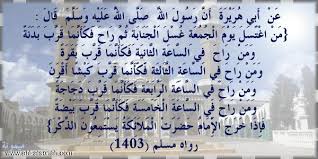 عَنْ أَبِي هُرَيْرَةَ أَنَّ رَسُولَ اللَّهِ صَلَّى اللَّهُ عَلَيْهِ وَسَلَّمَ قَالَ :
{مَنْ اغْتَسَلَ يَوْمَ الْجُمُعَةِ غُسْلَ الْجَنَابَةِ ثُمَّ رَاحَ فَكَأَنَّمَا قَرَّبَ بَدَنَةً
وَمَنْ رَاحَ فِي السَّاعَةِ الثَّانِيَةِ فَكَأَنَّمَا قَرَّبَ بَقَرَةً
وَمَنْ رَاحَ فِي السَّاعَةِ الثَّالِثَةِ فَكَأَنَّمَا قَرَّبَ كَبْشًا أَقْرَنَ
وَمَنْ رَاحَ فِي السَّاعَةِ الرَّابِعَةِ فَكَأَنَّمَا قَرَّبَ دَجَاجَةً
وَمَنْ رَاحَ فِي السَّاعَةِ الْخَامِسَةِ فَكَأَنَّمَا قَرَّبَ بَيْضَةً
فَإِذَا خَرَجَ الْإِمَامُ حَضَرَتْ الْمَلَائِكَةُ يَسْتَمِعُونَ الذِّكْرَ}
رواه مسلم (1403)